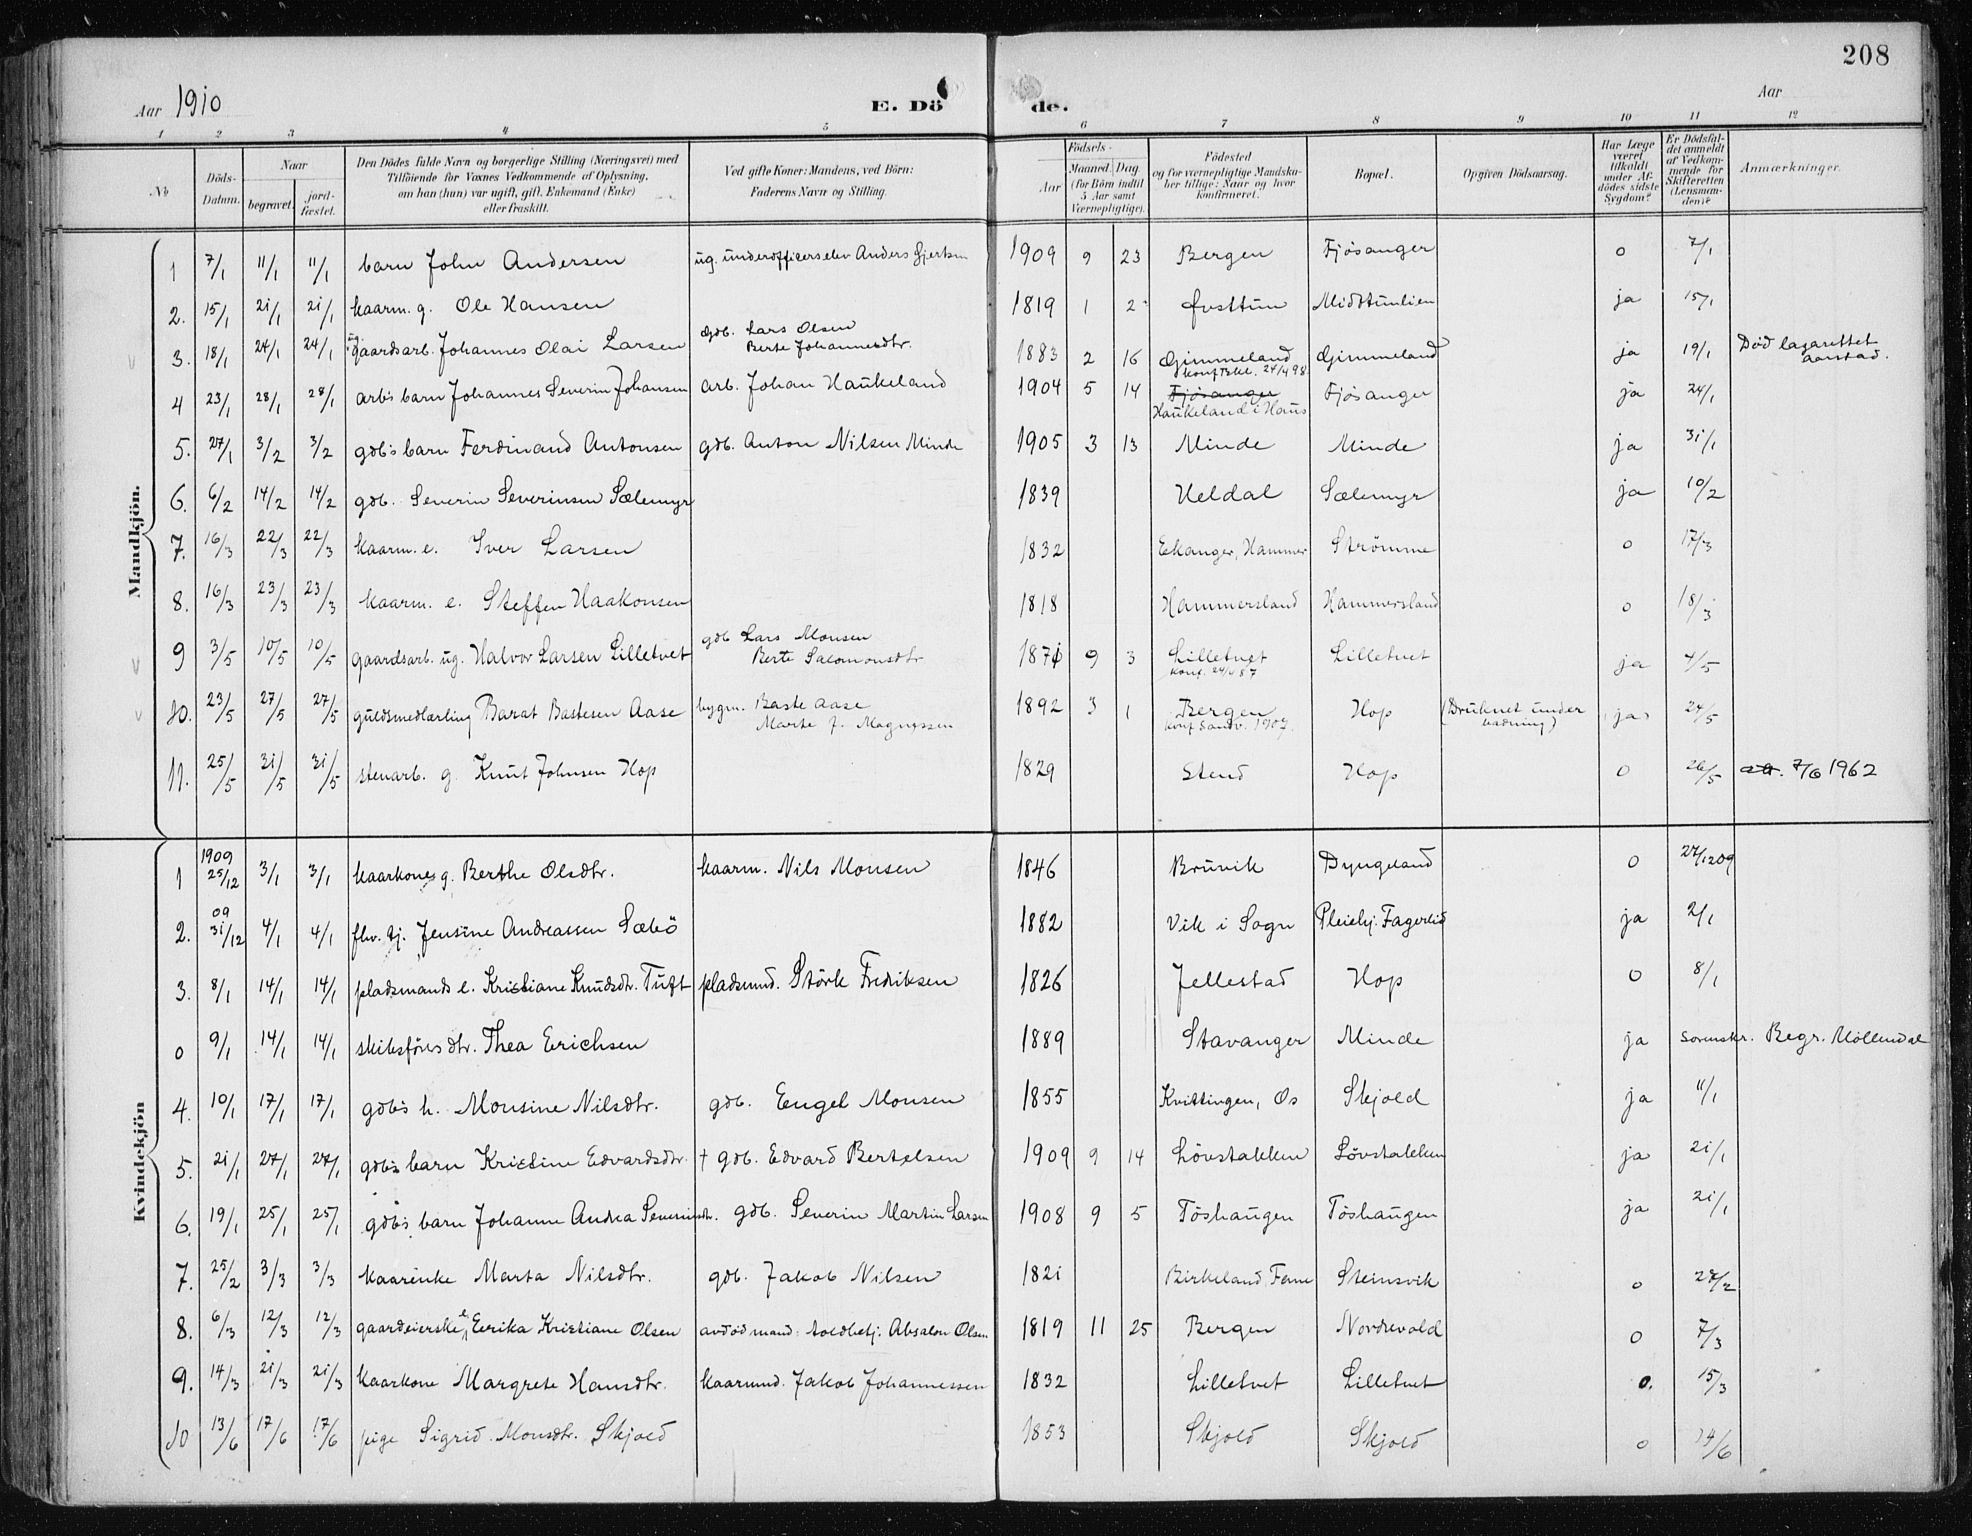 208
Aar 1910
E. Dö
de.
Aar
1 2 3 4 5 6 7 8 9 10 11 12
No
Döds-Datum.
Naar
begravet.
jord-fæstet.
Den Dödes fulde Navn og borgerlige Stilling (Næringsvei) med
Tilföiende for Voxnes Vedkommende af Oplysning,
om han (hun) var ugift, gift, Enkemand (Enke)
eller fraskilt.
Ved gifte Koner: Mandens, ved Börn:
Faderens Navn og Stilling.
Födsels-
Aar
Maaned. Dag
(for Börn indtil
5 Aar samt
Værnepligtige).
Födested
og for værnepligtige Mandska-
ber tillige: Naar og hvor
konfirmeret.
Bopæl.
Opgiven Dödsaarsag.
Har Læge
været
tilkaldt
under Af-
dödes sidste
Sygdom?
Er Dödsfal-
det anmeldt
af Vedkom-
mende for
Skifteretten
(Lensman-
den)?
Anmærkninger.
Mandkjön.
1 7/1 11/1 11/1 barn John Andersen ug. underofficerselev Anders Gjertsen 1909 9 23 Bergen Fjösanger o 7/1
2. 15/1 21/1 21/1 kaarm. g. Ole Hansen 1819 1 2 Øvsttun Midttunlien ja 15/1
3. 18/1 24/1 24/1 ug. gaardsarb. Johannes Olai Larsen gdb. Lars Olsen
Berte Johannesdtr. 1883 2 16 Gimmeland Gimmeland ja 19/1 Död lazarettet
konf. 24/4 98 aarstad.
4 23/1 28/1 28/1 arb's barn Johannes Severin Johansen arb. Johan Haukeland 1904 5 14 Fjösanger Fjösanger ja 24/1
Haukeland i Haus
5. 27/1 3/2 3/2 gdb's barn Ferdinand Antonsen gdb. Anton Nilsen Minde 1905 3 13 Minde Minde ja 31/1
6. 6/2 14/2 14/2 gdb. Severin Severinsen Sælemyr 1839 Heldal Sælemyr ja 10/2
7. 16/3 22/3 22/3 kaarm. e. Iver Larsen 1832 Eikanger, Hammer Strömme o 17/3
8. 16/3 23/3 23/3 kaarm. e. Steffen Haakonsen 1818 Hammersland Hammersland o 18/3
9 3/5 10/5 10/5 gaardsarb. ug. Halvor Larsen Lilletvet gdb Lars Monsen
Berte Salomonsdtr 1871 9 3 Lilletvet Lilletvet ja 4/5
konf. 24/4 87
10. 23/5 27/5 27/5 guldsmedlærling Barat Bastesen Aase bygm. Baste Aase
Marte J. Magnussen 1892 3 1 Bergen Hop (Druknet under ja 24/5
konf Sandv. 1907. badning)
11. 25/5 31/5 31/5 stenarb. g. Knut Johnsen Hop 1829 Stend Hop o 26/5 att. 7/6 1962
Kvindekjön
1 1909 25/12 3/1 3/1 kaarkone g. Berthe Olsdtr. kaarm. Nils Monsen 1846 Bruvik Dyngeland o 27/12 09
2. 09 31/12 4/1 4/1 fhv. tj. Jensine Andreassen Sæbö 1882 Vik i Sogn Pleiehj. Fagerlid ja 2/1
3. 8/1 14/1 14/1 pladsmands e. Kristiane Knudsdtr. Tuft pladsmd. Störk Fredriksen 1826 Jellestad Hop o 8/1
o 9/1 14/1 14/1 skibsförers dtr. Thea Erichsen 1889 Stavanger Minde ja Sorenskr. Begr. Möllendal
4. 10/1 17/1 17/1 gdb's h. Monsine Nilsdtr. gdb. Engel Monsen 1855 Kvittingen, Os Skjold ja 11/1
5. 21/1 27/1 27/1 gdb's barn Kristine Edvardsdtr. + gdb. Edvard Bertelsen 1909 9 14 Lövstakken Lövstakken ja 21/1
6. 19/1 25/1 25/1 gdb's barn Johanne Andrea Severinsdtr. gdb. Severin Martin Larsen 1908 9 5 Töshaugen Töshaugen ja 21/1
7. 25/2 3/3 3/3 kaarenke Marta Nilsdtr. gdb. Jakob Nilsen 1821 Birkeland, Fane Steinsvik o 27/2
8. 6/3 12/3 12/3 gaardeierske e Eerika Kristiane Olsen avdöd mand: toldbetj. Absalon Olsen 1819 11 25 Bergen Nordrevold o 7/3
9. 14/3 21/3 21/3 kaarkone Margrete Hansdtr. kaarmd. Jakob Johannessen 1832 Lilletvet Lilletvet o. 15/3
10 13/6 17/6 17/6 pige Sigrid Monsdtr. Skjold 1853 Skjold Skjold o 14/6